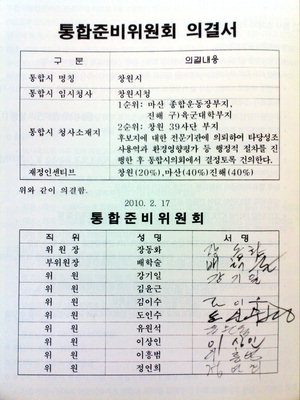 통합준비위원회 의결서
구 분 의결내용
통합시 명칭 창원시
통합시 임시청사 창원시청
통합시 청사소재지 1순위: 마산 종합운동장부지,
진해 구)육군대학부지
2순위: 창원 39사단 부지
후보지에 대한 전문기관에 의뢰하여 타당성조
사용역과 환경영향평가 등 행정적 절차를 진
행한 후 통합시의회에서 결정토록 건의한다.
재정인센티브 창원(20%),마산(40%)진해(40%)
위와 같이 의결함.
2010. 2. 17
통합준비위원회
직 위 성 명 서 명
위 원 장 장동화
부위원장 배학술
위 원 강기일 강기일
위 원 김윤근
위 원 김이수
위 원 도인수
위 원 유원석
위 원 이상인 이상인
위 원 이흥범
위 원 정연희